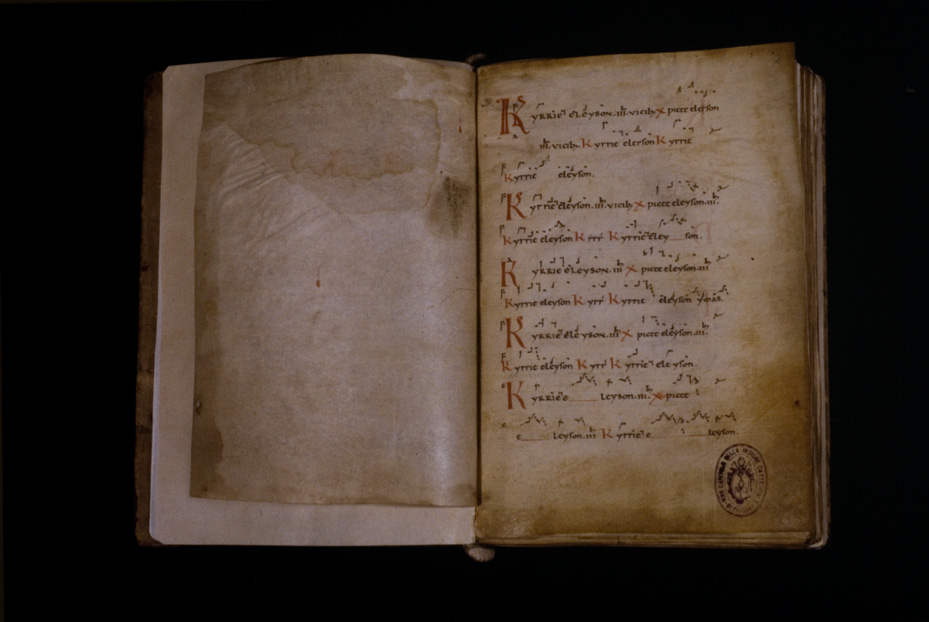 Kyrrie eleyson. iii. vicib; Xpicte eleyson
iii. vicib; Kyrrie eleison Kyrrie
Kyrrie eleyson.
Kyrrie eleyson. iii. vicib; Xpicte eleyson. iii.
Kyrrie eleyson Kyrr Kyrrie eley son.
Kyrrie eleyson. iii Xpicte eleyson. iii
Kyrrie eleyson Kyrr Kyrrie eleyson
Kyrrie eleyson. iii Xpicte eleyson. iii.
Kyrrie eleyson Kyrr Kyrrie eleyson.
Kyrrie e leyson. iii. Xpicte
e leyson. iii Kyrrie e leyson.